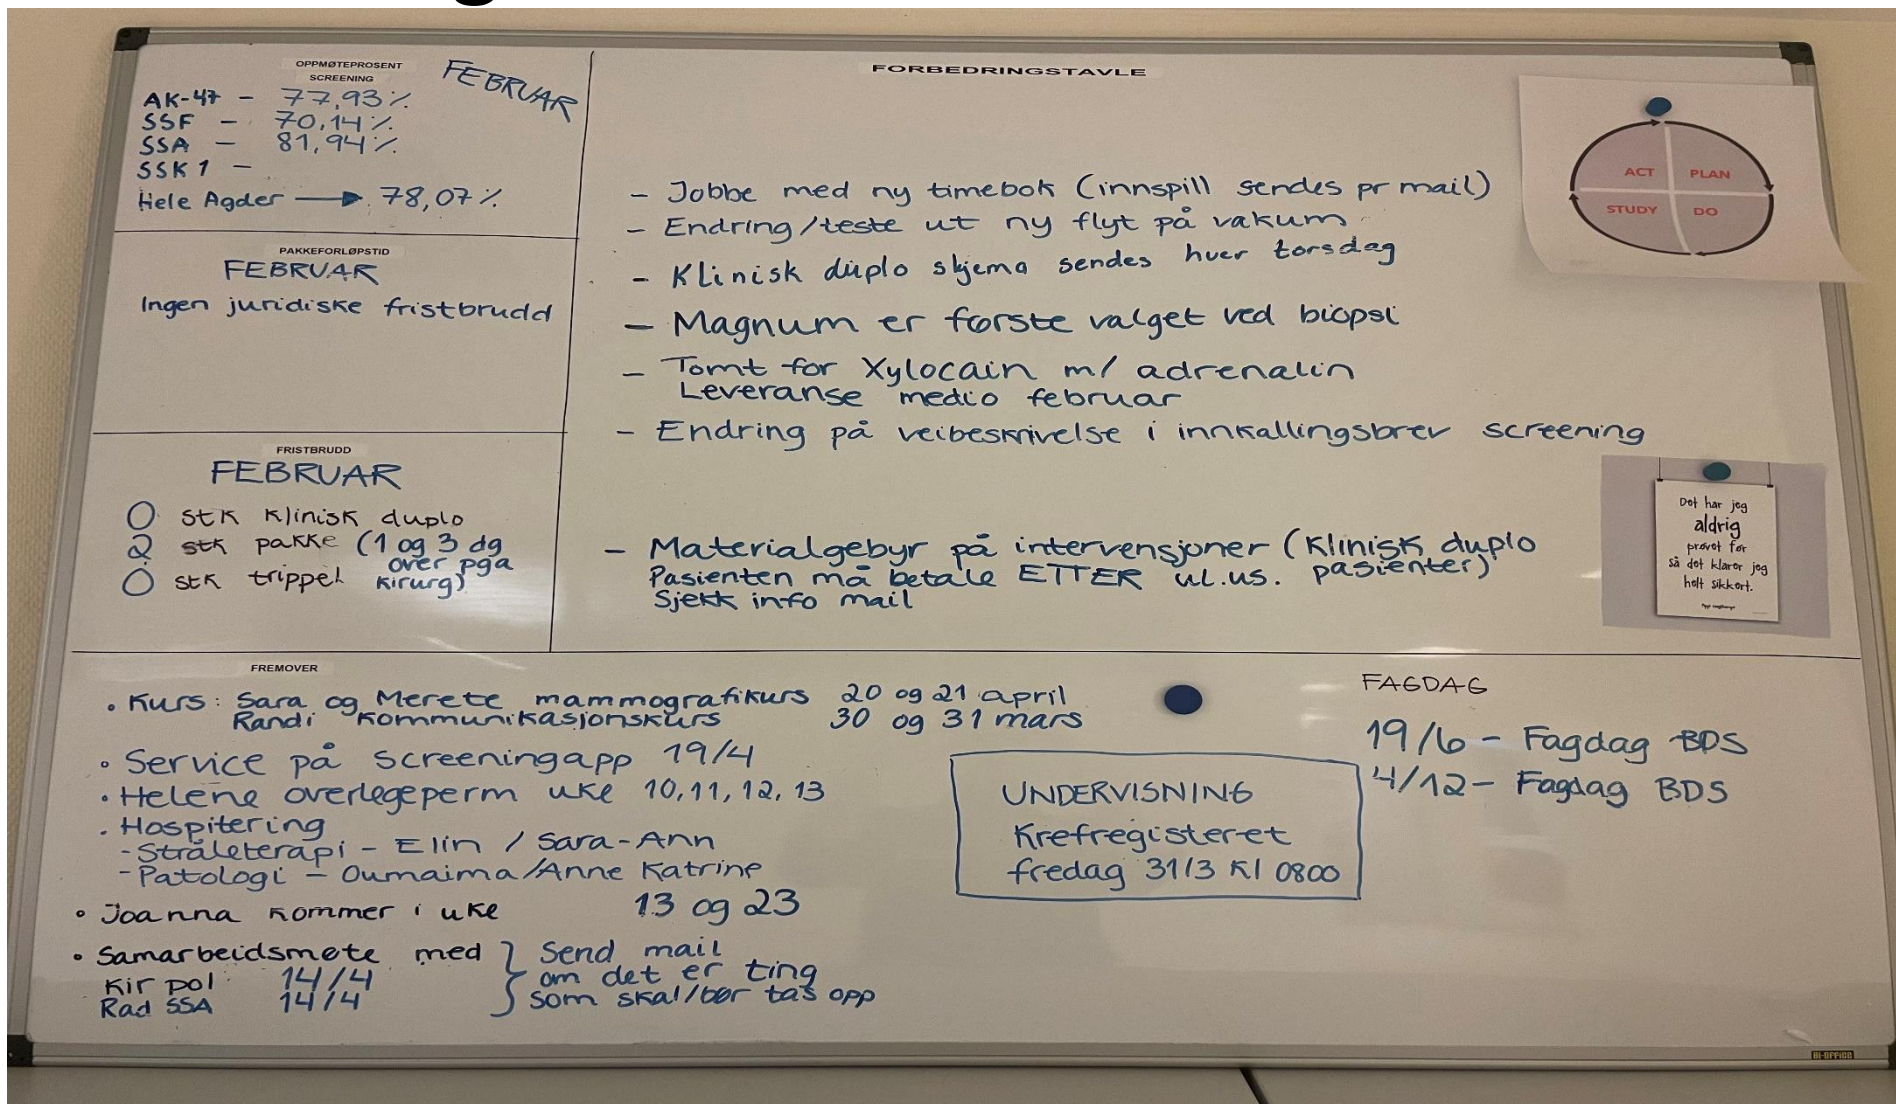 OPPMØTEPROSENT
SCREENING
FEBRUAR
AK-47 - 77,93%
SSF - 70,14%
SSA - 81,94%
SSK 1 -
Hele Agder → 78,07%
PAKKEFORLØPSTID
FEBRUAR
Ingen juridiske fristbrudd
FRISTBRUDD
FEBRUAR
0 stk klinisk duplo
2 stk pakke (1 og 3 dg
over pga
0 stk trippel kirurg)
FORBEDRINGSTAVLE
- Jobbe med ny timebok (innspill sendes pr mail)
- Endring/teste ut ny flyt på vakum
- Klinisk duplo skjema sendes hver torsdag
- Magnum er første valget ved biopsi
- Tomt for Xylocain m/ adrenalin
Leveranse medio februar
- Endring på veibeskrivelse i innkallingsbrev screening
- Materialgebyr på intervensjoner (Klinisk duplo
Pasienten må betale ETTER ul.us. pasienter)
Sjekk info mail
ACT PLAN
STUDY DO
Det har jeg
aldrig
prøvet før
så det klarer jeg
helt sikkert.
FREMOVER
• Kurs: Sara og Merete mammografikurs 20 og 21 april
Randi kommunikasjonskurs 30 og 31 mars
• Service på screeningapp 19/4
• Helene overlegeperm uke 10, 11, 12, 13
• Hospitering
- Stråleterapi - Elin / Sara-Ann
- Patologi - Oumaima/Anne Katrine
• Joanna kommer i uke 13 og 23
• Samarbeidsmøte med } Send mail
Kir pol 14/4 om det er ting
Rad SSA 14/4 som skal/bør tas opp
UNDERVISNING
Krefregisteret
fredag 31/3 Kl 0800
FAGDAG
19/6 - Fagdag BDS
4/12 - Fagdag BDS
BI-OFFICE